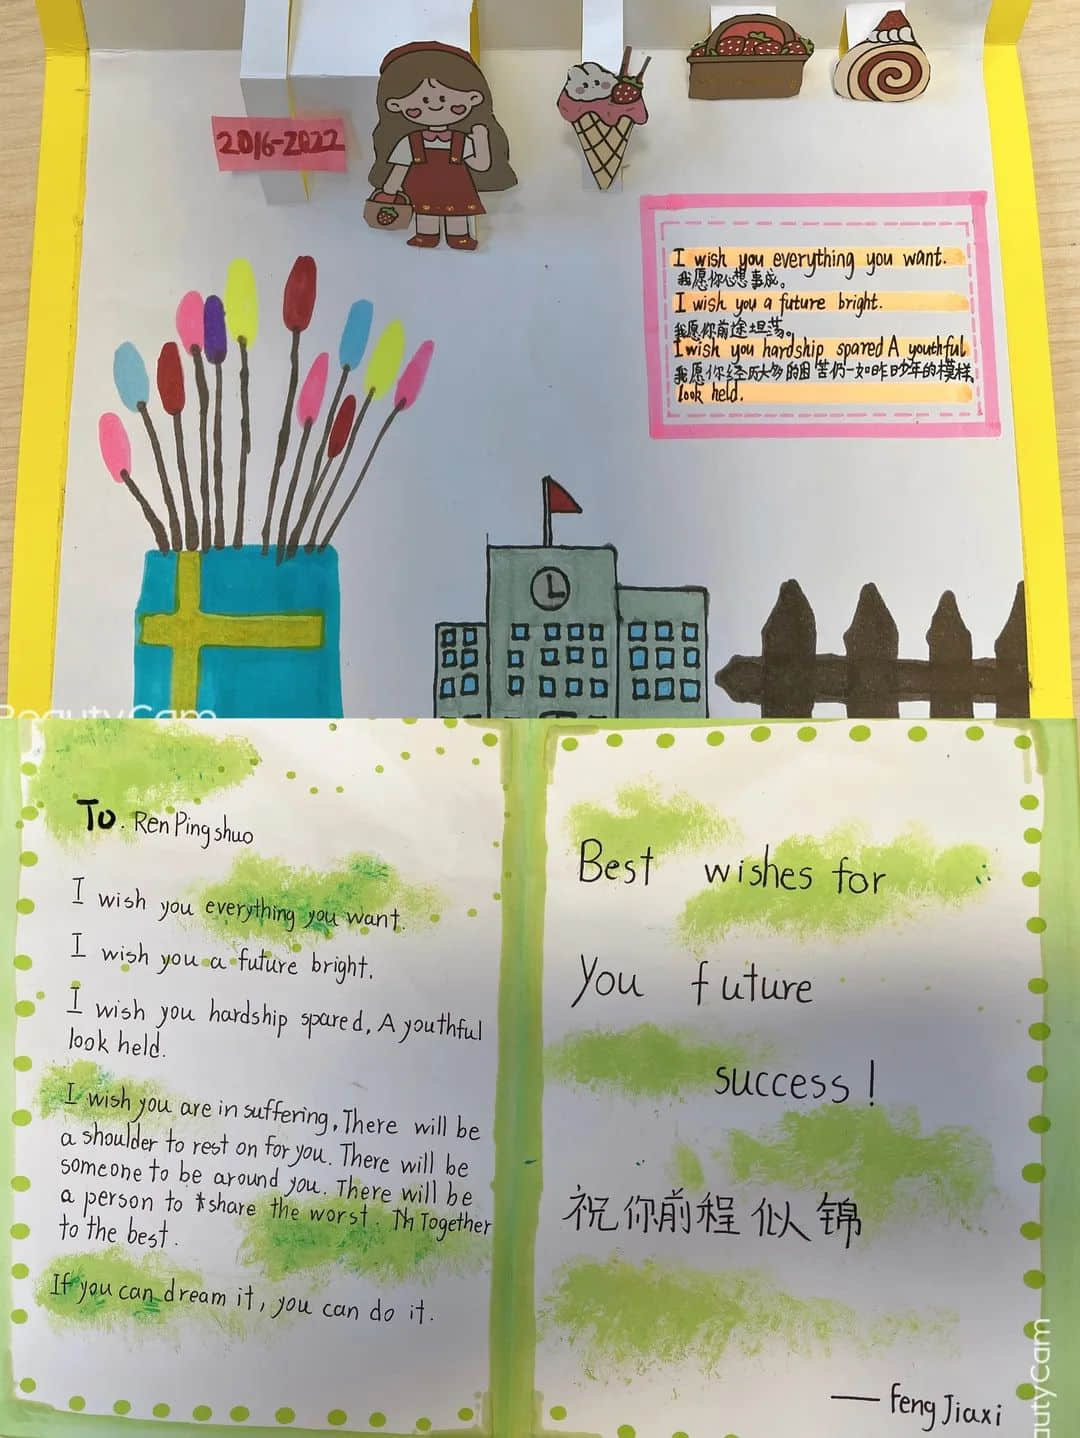 2016-2022
I wish you everything you want.
我愿你心想事成。
I wish you a future bright.
我愿你前途坦荡。
I wish you hardship spared A youthful
我愿你经历大多的困苦仍一如昨日少年的模样,
look held.
BeautyCam
To. Ren Pingshuo
I wish you everything you want.
I wish you a future bright.
I wish you hardship spared, A youthful
look held.
I wish you are in suffering, There will be
a shoulder to rest on for you. There will be
someone to be around you. There will be
a person to share the worst. Th Together
to the best.
If you can dream it, you can do it.
Best wishes for
you future
success!
祝你前程似锦
— Feng Jiaxi
BeautyCam